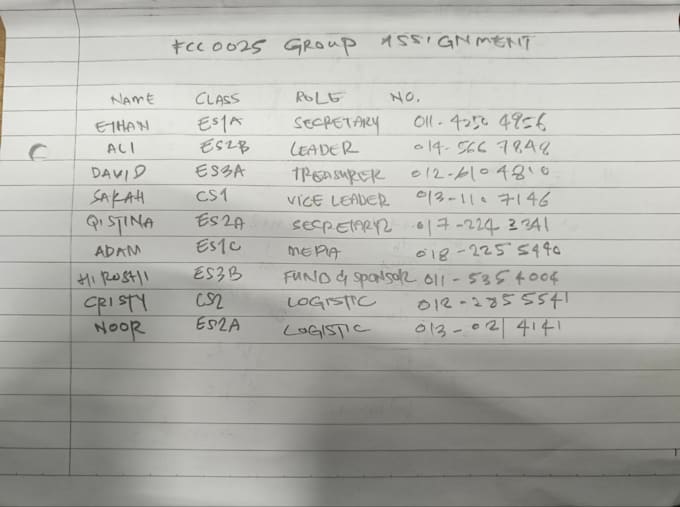 FCC0025 GROUP ASSIGNMENT
NAME CLASS ROLE NO.
ETHAN ES1A SECRETARY 011-4250 4956
ALI ES2B LEADER 014-566 7848
DAVID ES3A TREASURER 012-610 4810
SARAH CS1 VICE LEADER 013-110 7146
QISTINA ES2A SECRETARY2 017-224 3341
ADAM ES1C MEDIA 018-225 5440
HIROSHI ES3B FUND & SPONSOR 011-5354004
CRISTY CS2 LOGISTIC 012-285 5541
NOOR ES2A LOGISTIC 013-021 4141